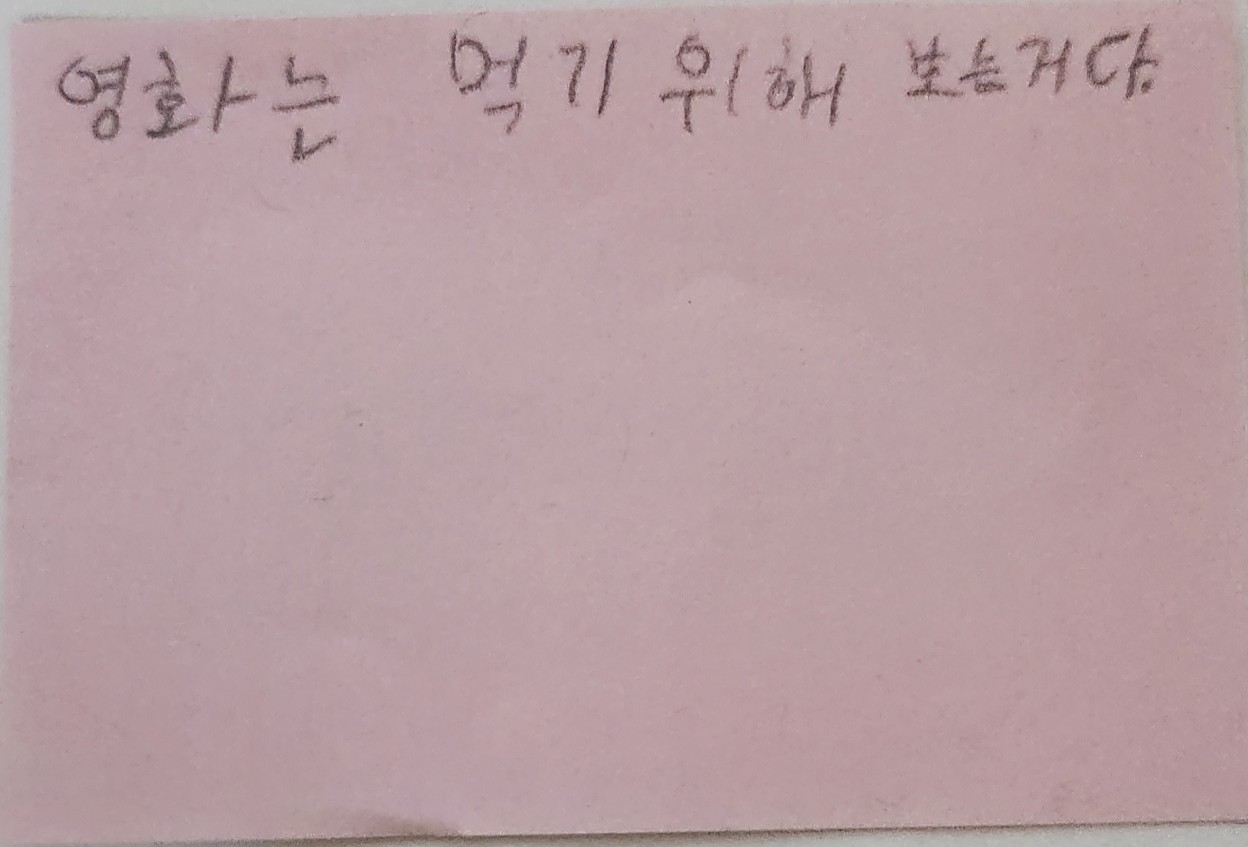 영화는 먹기 위해 보는거다.